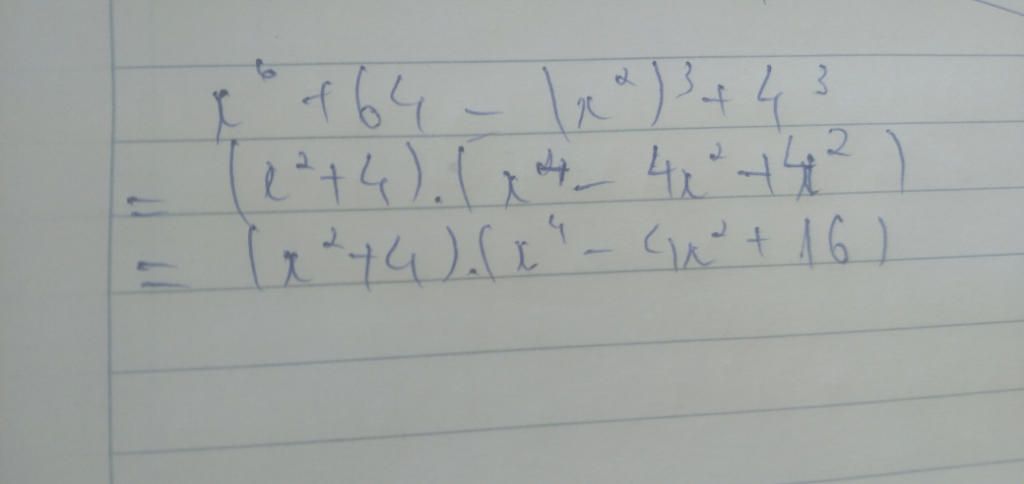 x⁶ + 64 = (x²)³ + 4³
= (x² + 4).(x⁴ - 4x² + 4²)
= (x² + 4).(x⁴ - 4x² + 16)